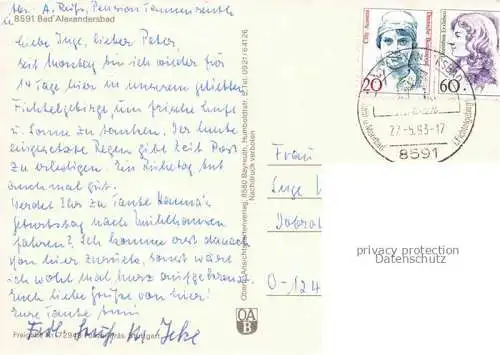 Abs. A. Reiß, Pension Tannenreuth
8591 Bad Alexandersbad
Liebe Inge, lieber Peter,
seit Montag bin ich wieder für
14 Tage hier in unserem geliebten
Fichtelgebirge, um frische Luft
u. Sonne zu tanken. Der heute
eingesetzte Regen gibt Zeit Post
zu erledigen. Ein Ruhetag tut
auch mal gut.
Werdet Ihr zu Tante Hanna's
Geburtstag nach Mühlhausen
fahren? Ich komme erst danach
von hier zurück, sonst wäre
ich wohl mal kurz aufgekreuzt.
Euch liebe Grüße von hier!
Eure Tante
Freigabe
72948
Oberfr. Ansichtskartenverlag, 8580 Bayreuth, Humboldtstr. Tel. 0921/64126
Nachdruck verboten
OA
B
Cilly Aussem
Deutsche Bundespost
20
Dorothea Erxleben
60
27.-5.93-17
8591
Frau
Inge
O-124
privacy protection
Datenschutz